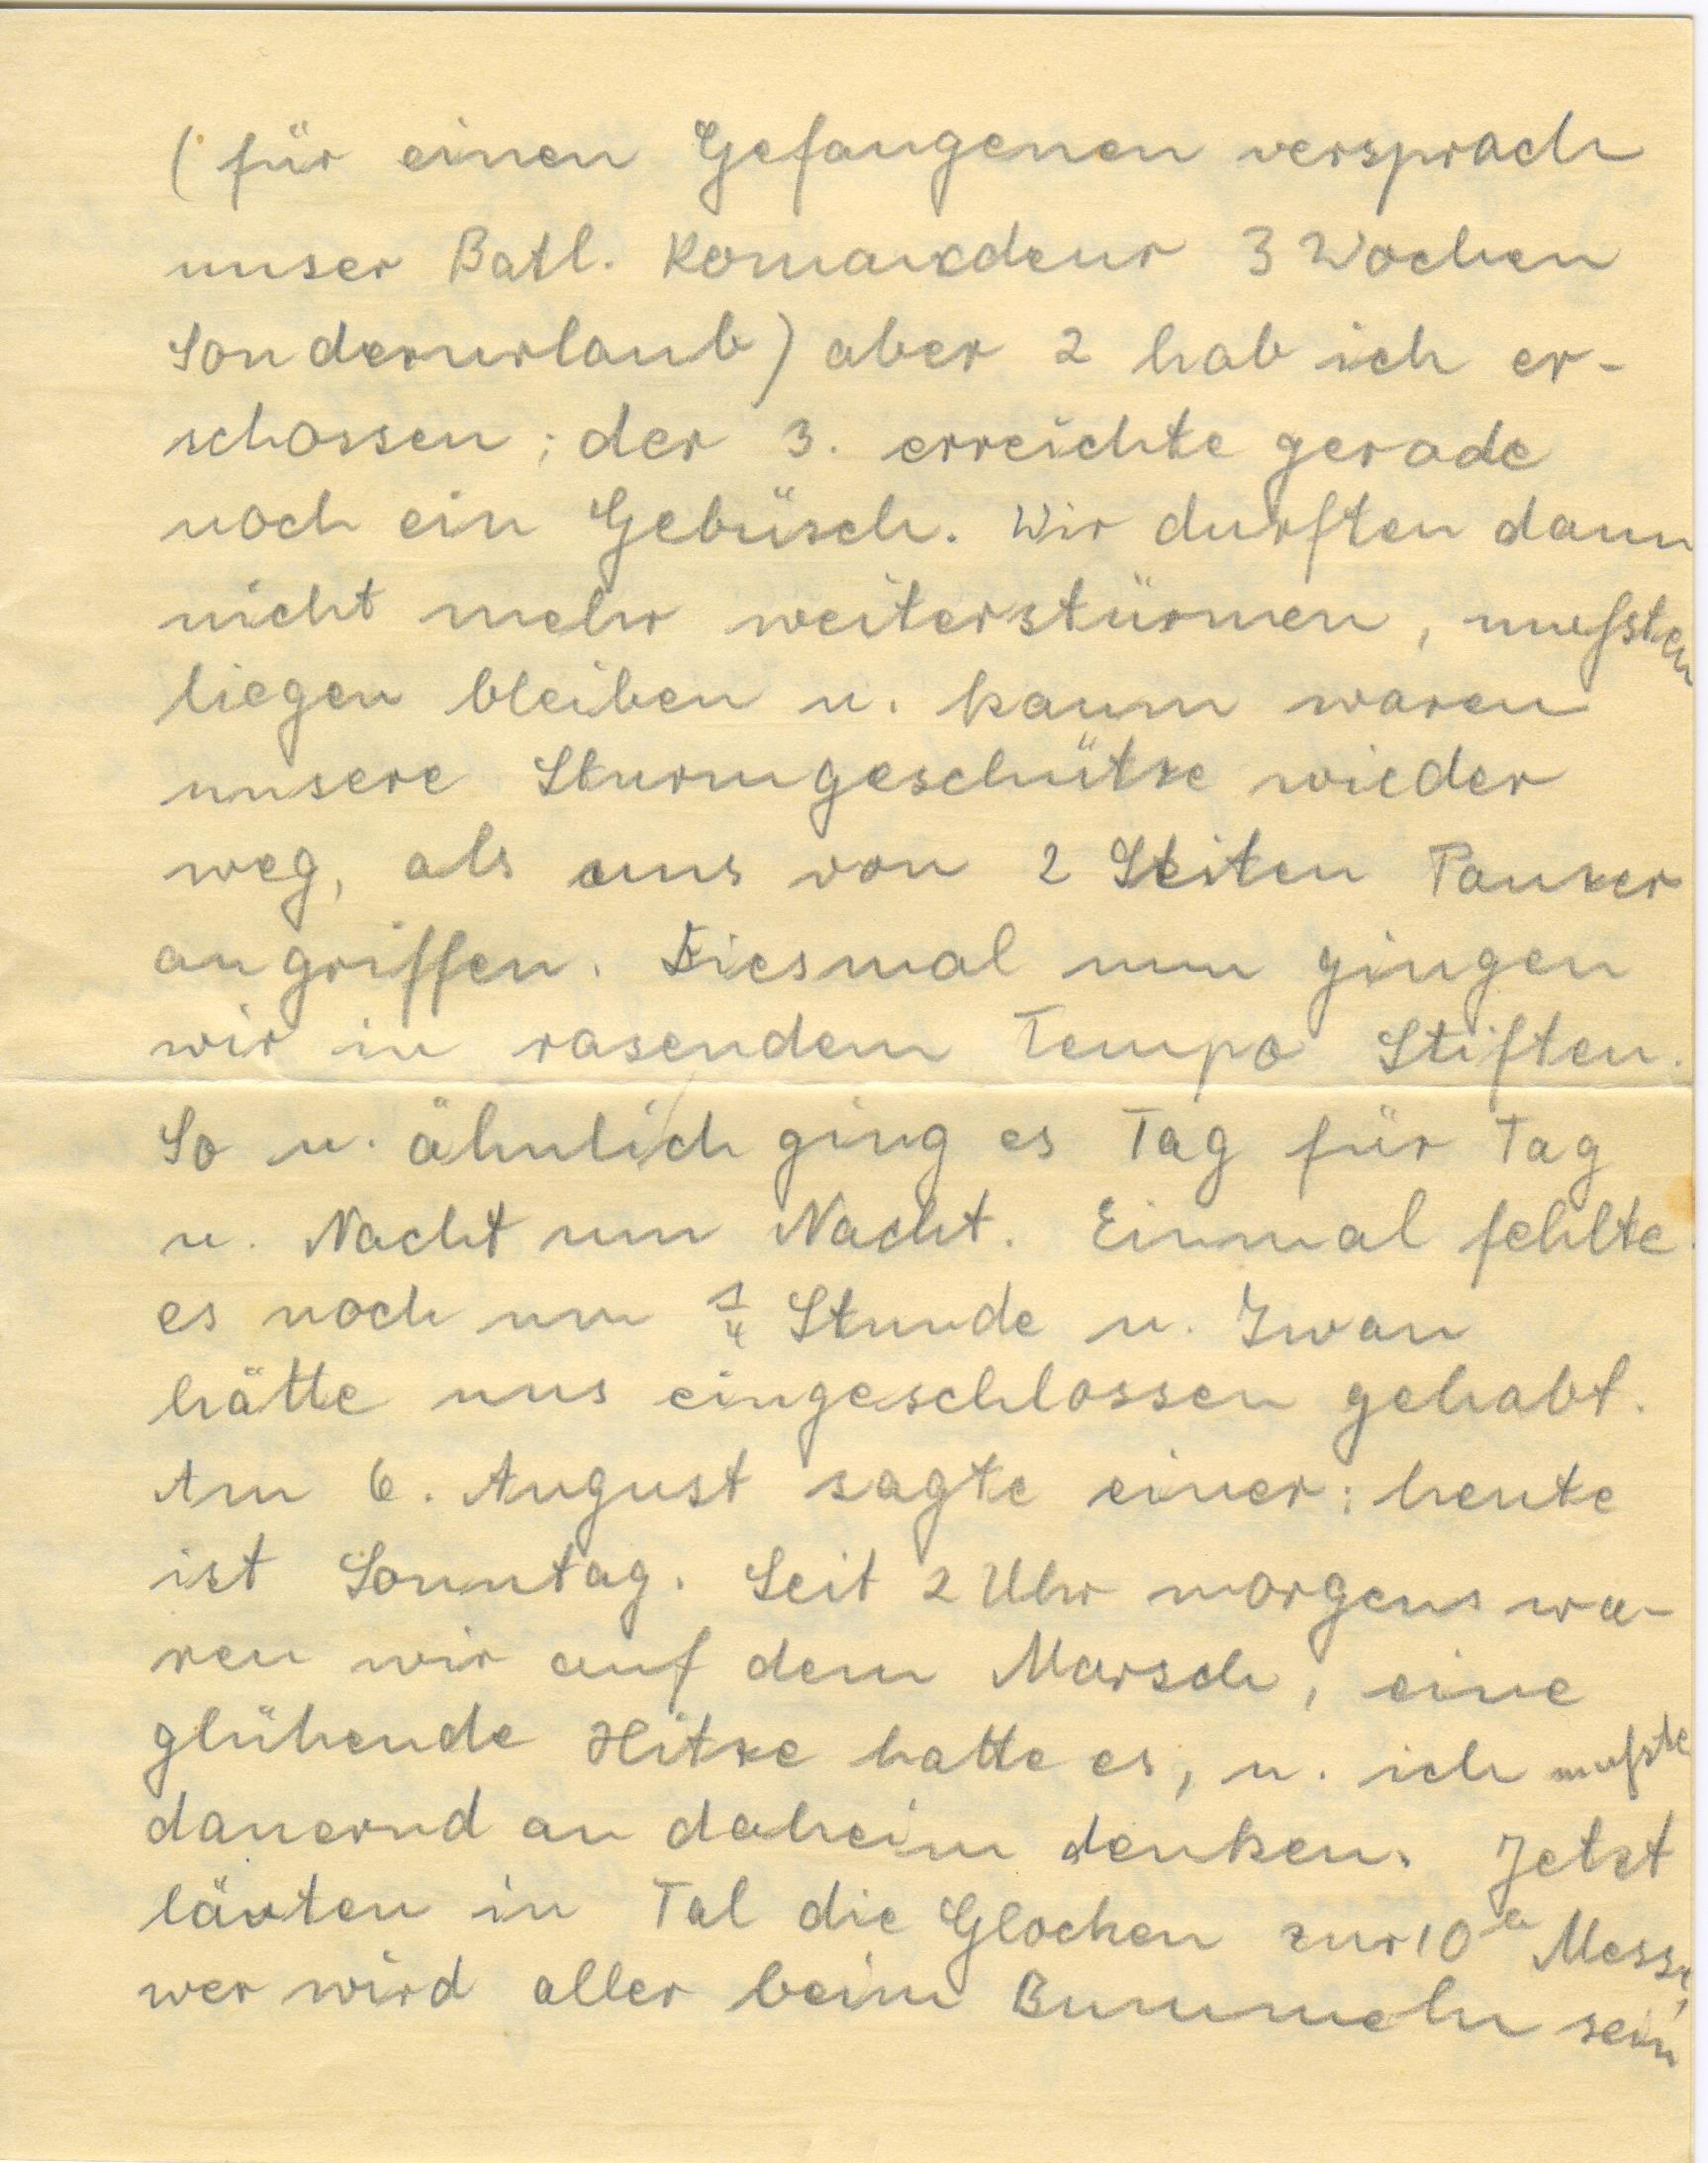 (für einen Gefangenen versprach
unser Batl. Komandeur 3 Wochen
Sonderurlaub) aber 2 hab ich er-
schossen; der 3. erreichte gerade
noch ein Gebüsch. Wir durften dann
nicht mehr weiterstürmen, mußten
liegen bleiben u. kaum waren
unsere Sturmgeschütze wieder
weg, als uns von 2 Seiten Panzer
angriffen. Diesmal nun gingen
wir in rasendem Tempo Stiften.
So u. ähnlich ging es Tag für Tag
u. Nacht um Nacht. Einmal fehlte
es noch um ¼ Stunde u. Iwan
hätte uns eingeschlossen gehabt.
Am 6. August sagte einer: heute
ist Sonntag. Seit 2 Uhr morgens wa-
ren wir auf dem Marsch, eine
glühende Hitze hatte es, u. ich mußte
dauernd an daheim denken. Jetzt
läuten in Tal die Glocken zur 10ᵉ Messe,
wer wird aller beim Bummeln sein